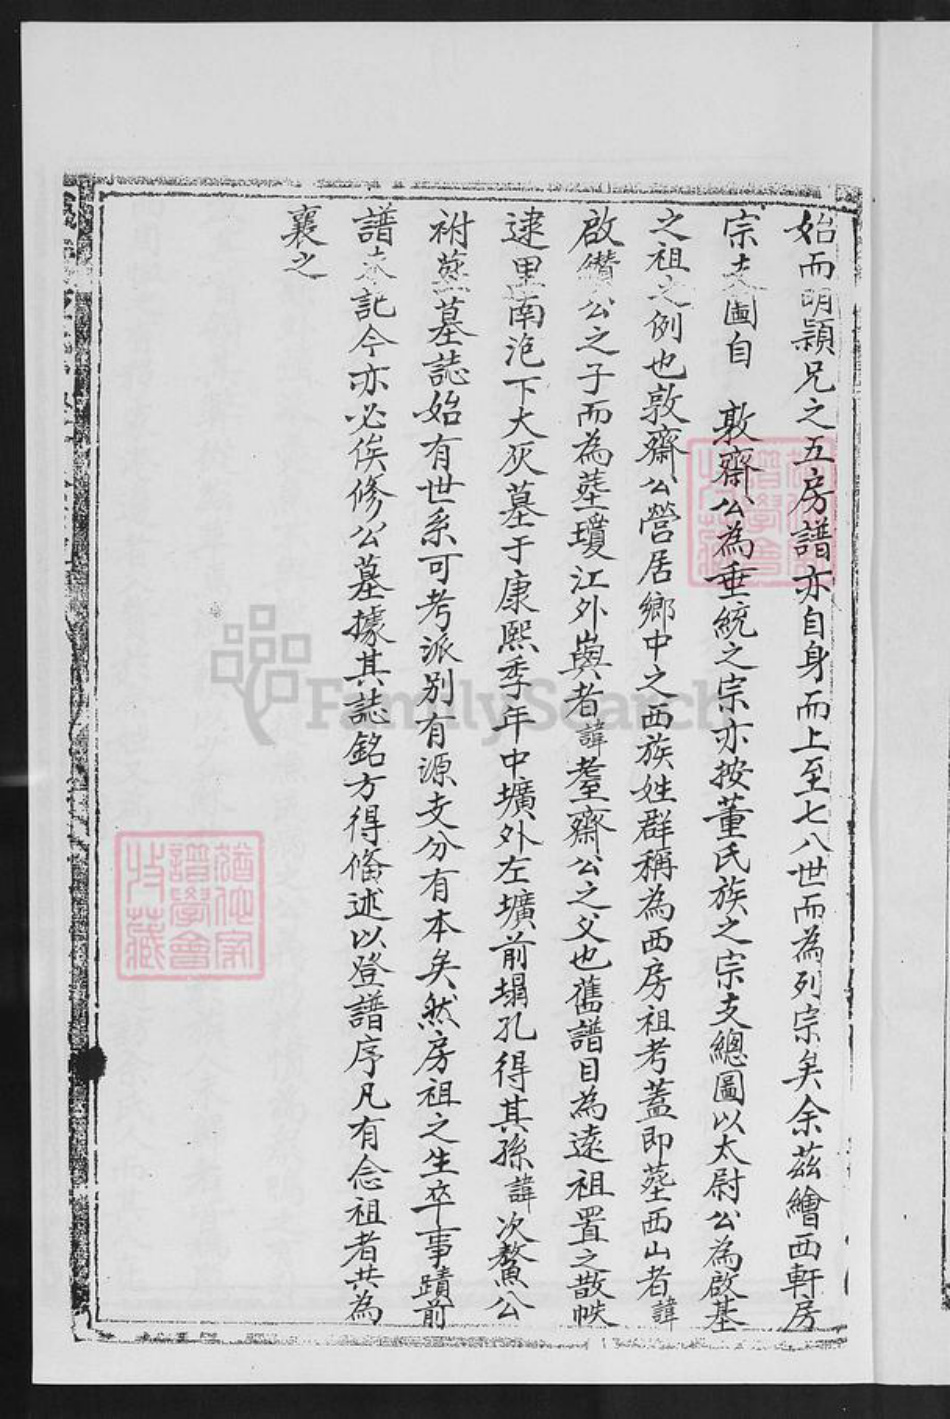 始而明穎兄之五房譜亦自身而上至七八世而為列宗矣余茲繪西軒房
宗支圖自 敦齋公為垂統之宗亦按董氏族之宗支總圖以太尉公為啟基
之祖之例也敦齋公營居鄉中之西族姓群稱為西房祖考蓋即塟西山者諱
啟纘公之子而為塟瓊江外嶼者諱耋齋公之父也舊譜目為遠祖置之散帙
逮里南洍下大灰墓于康熙季年中壙外左壙前塌孔得其孫諱次鰲公
祔塟墓誌始有世系可考派別有源支分有本矣然房祖之生卒事蹟前
譜未記今亦必俟修公墓據其誌銘方得俻述以登譜序凡有念祖者共為
襄之
譜學會
收藏
FamilySearch